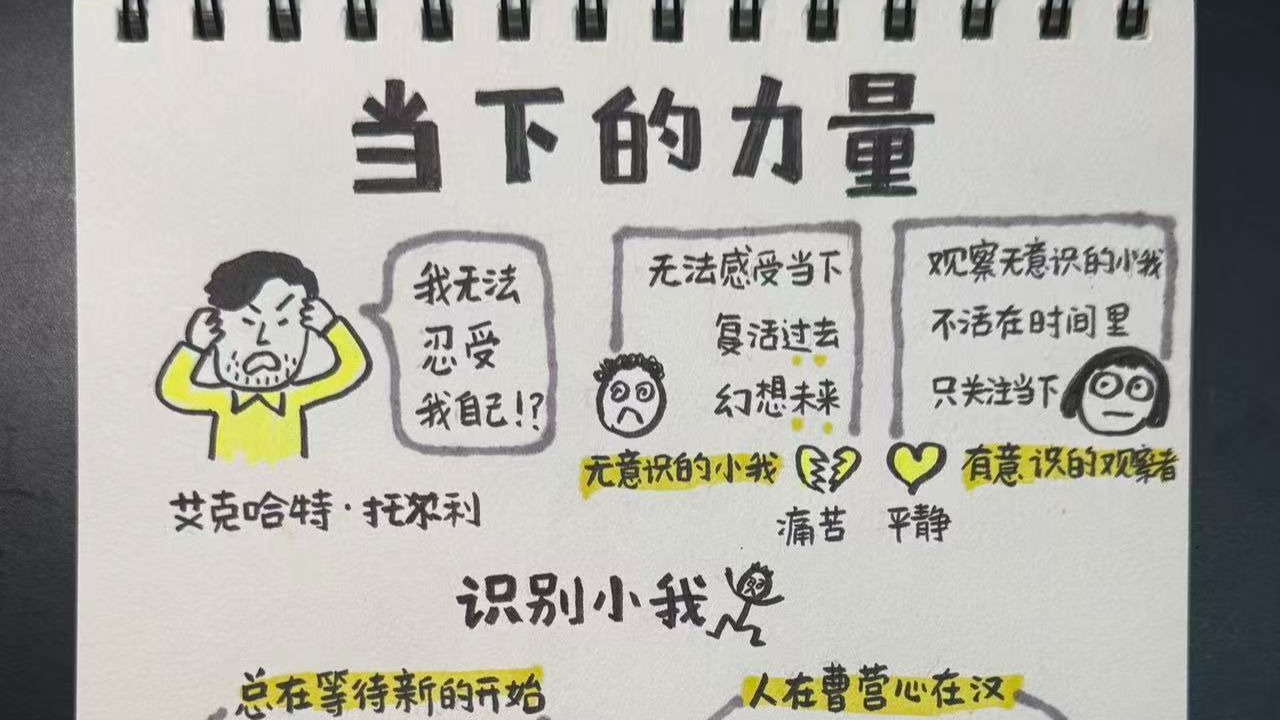 当下的力量
我无法
忍受
我自己!?
艾克哈特·托尔利
无法感受当下
复活过去
幻想未来
无意识的小我
痛苦
观察无意识的小我
不活在时间里
只关注当下
有意识的观察者
平静
识别小我
总在等待新的开始
人在曹营心在汉